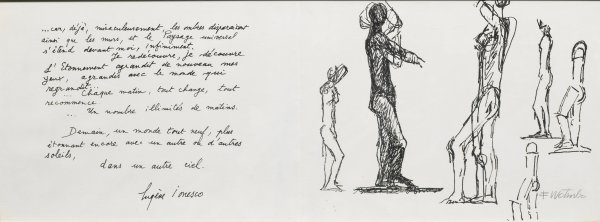 ...car, déjà, miraculeusement, les ombres disparaissent
ainsi que les murs, et le Paysage universel
s'étend devant moi, infiniment.
Je redécouvre, je découvre
L'Étonnement agrandit de nouveau mes
yeux, agrandis avec le monde qui
regrandit...
...Chaque matin, tout change, tout
recommence
... Un nombre illimités de matins.
Demain, un monde tout neuf, plus
étonnant encore avec un autre ou d'autres
soleils,
dans un autre ciel.
Eugène Ionesco